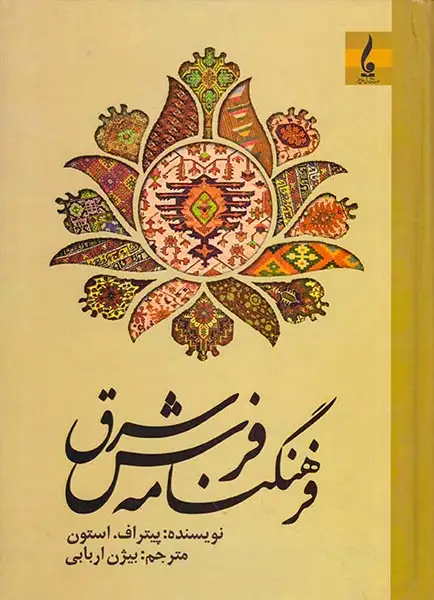 فرهنگنامه فرش شرق
نویسنده: پیتراف. استون
مترجم: بیژن اربابی